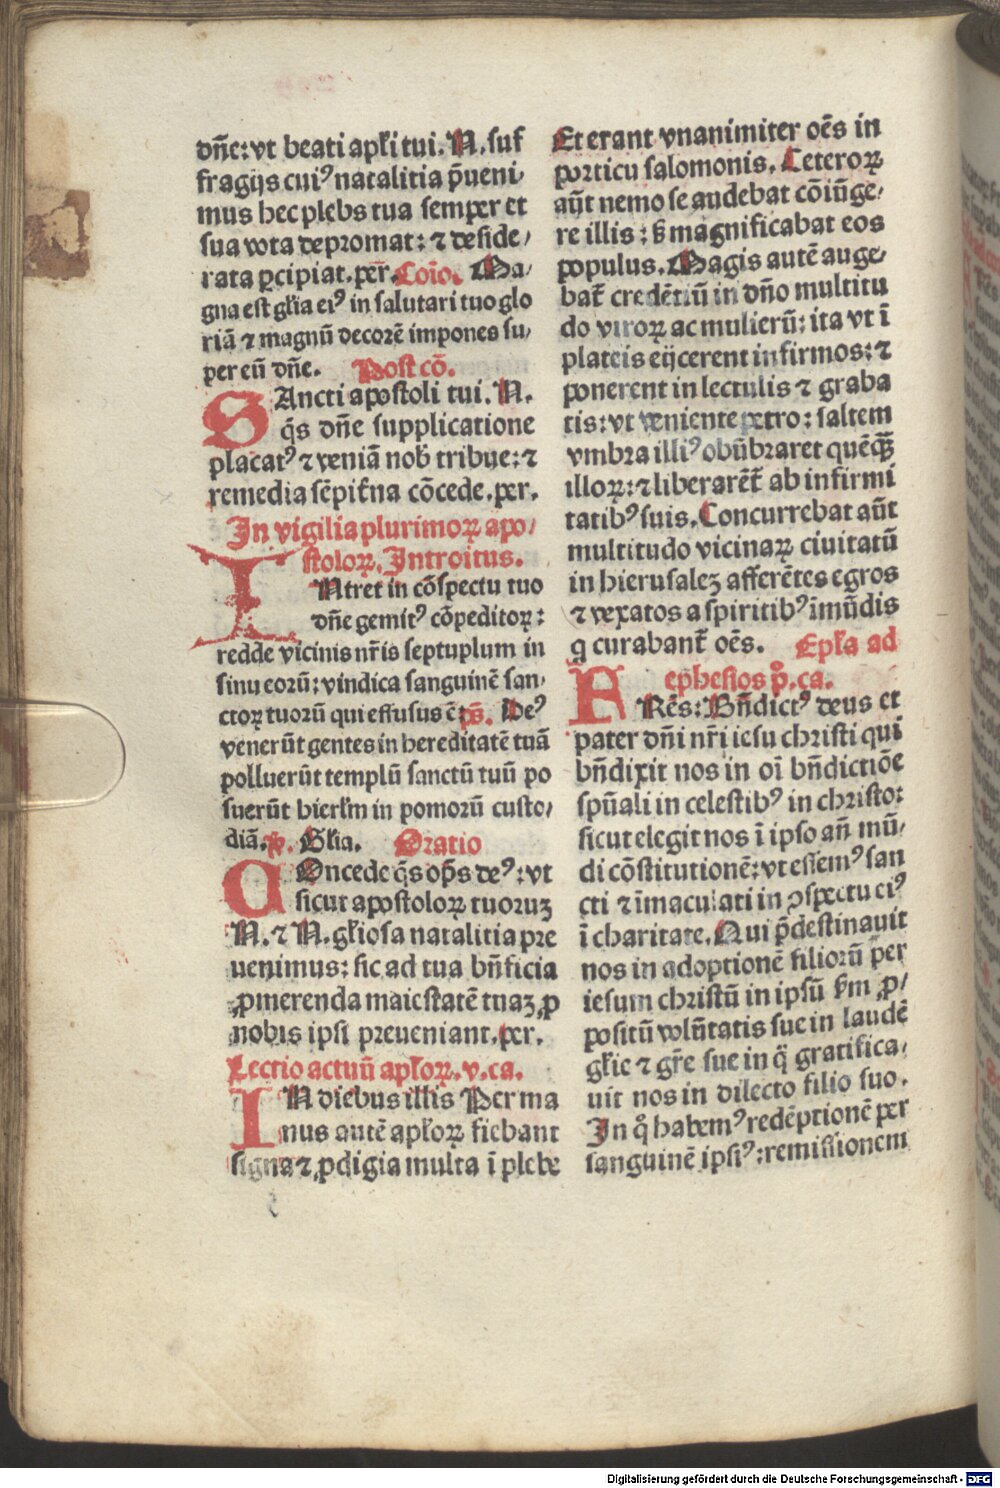 dn̄e: vt beati apl̄i tui. N. suf
fragijs cuiꝰ natalitia p̄ueni-
mus hec plebs tua semper et
sua vota depromat: ⁊ deside/
rata ꝑcipiat. per̄. Coīo. Ma/
gna est gl̄ia eiꝰ in salutari tuo glo
riā ⁊ magnū decorē impones su/
per eū dn̄e. Post cō.
SAncti apostoli tui. N.
q̄s dn̄e supplicatione
placatꝰ ⁊ veniā nob̄ tribue: ⁊
remedia sēpit̄na cōcede. per.
In vigilia plurimoꝝ apo/
stoloꝝ. Introitus.
INtret in cōspectu tuo
dn̄e gemitꝰ cōpeditoꝝ:
redde vicinis nr̄is septuplum in
sinu eorū: vindica sanguinē san-
ctoꝝ tuorū qui effusus ē: ps̄. Deꝰ
venerūt gentes in hereditatē tuā
polluerūt templū sanctū tuū po
suerūt hierl̄m in pomorū custo/
diā. ꝟ. Gl̄ia. Oratio
COncede q̄s op̄s deꝰ: vt
sicut apostoloꝝ tuoruꝫ
N. ⁊ N. gl̄iosa natalitia pre
uenimus: sic ad tua bn̄ficia
ꝓmerenda maiestatē tuaꝫ ꝓ
nobis ipsi preueniant. per.
Lectio actuū apl̄oꝝ. v. ca.
IN diebus illis Per ma
nus autē apl̄oꝝ fiebant
signa ⁊ ꝓdigia multa ī plebe
Et erant vnanimiter oēs in
porticu salomonis. Ceteroꝝ
aūt nemo se audebat cōiūge/
re illis: s̄ magnificabat eos
populus. Magis autē auge/
bat̄ credētiū in dn̄o multitu
do viroꝝ ac mulierū: ita vt ī
plateis eijcerent infirmos: ⁊
ponerent in lectulis ⁊ graba
tis: vt veniente petro: saltem
vmbra illiꝰ obūbraret quēqꝫ
illoꝝ: ⁊ liberarēt̄ ab infirmi
tatibꝰ suis. Concurrebat aūt
multitudo vicinaꝝ ciuitatū
in hierusaleꝫ afferētes egros
⁊ vexatos a spiritibꝰ īmūdis
q̄ curabant̄ oēs. Epl̄a ad
ephesios p̄. ca.
FRēs: Bn̄dictꝰ deus et
pater dn̄i nr̄i iesu christi qui
bn̄dixit nos in oī bn̄dictiōe
spūali in celestibꝰ in christo:
sicut elegit nos ī ipso añ mū/
di cōstitutionē: vt essemꝰ san
cti ⁊ īmaculati in ꝯspectu eiꝰ
ī charitate. Qui p̄destinauit
nos in adoptionē filiorū per
iesum christū in ipsū s̄m ꝓ/
positū volūtatis sue in laudē
gl̄ie ⁊ gr̄e sue in q̄ gratifica/
uit nos in dilecto filio suo.
In q̄ habemꝰ redēptionē per
sanguinē ipsiꝰ: remissionem
Digitalisierung gefördert durch die Deutsche Forschungsgemeinschaft - DFG